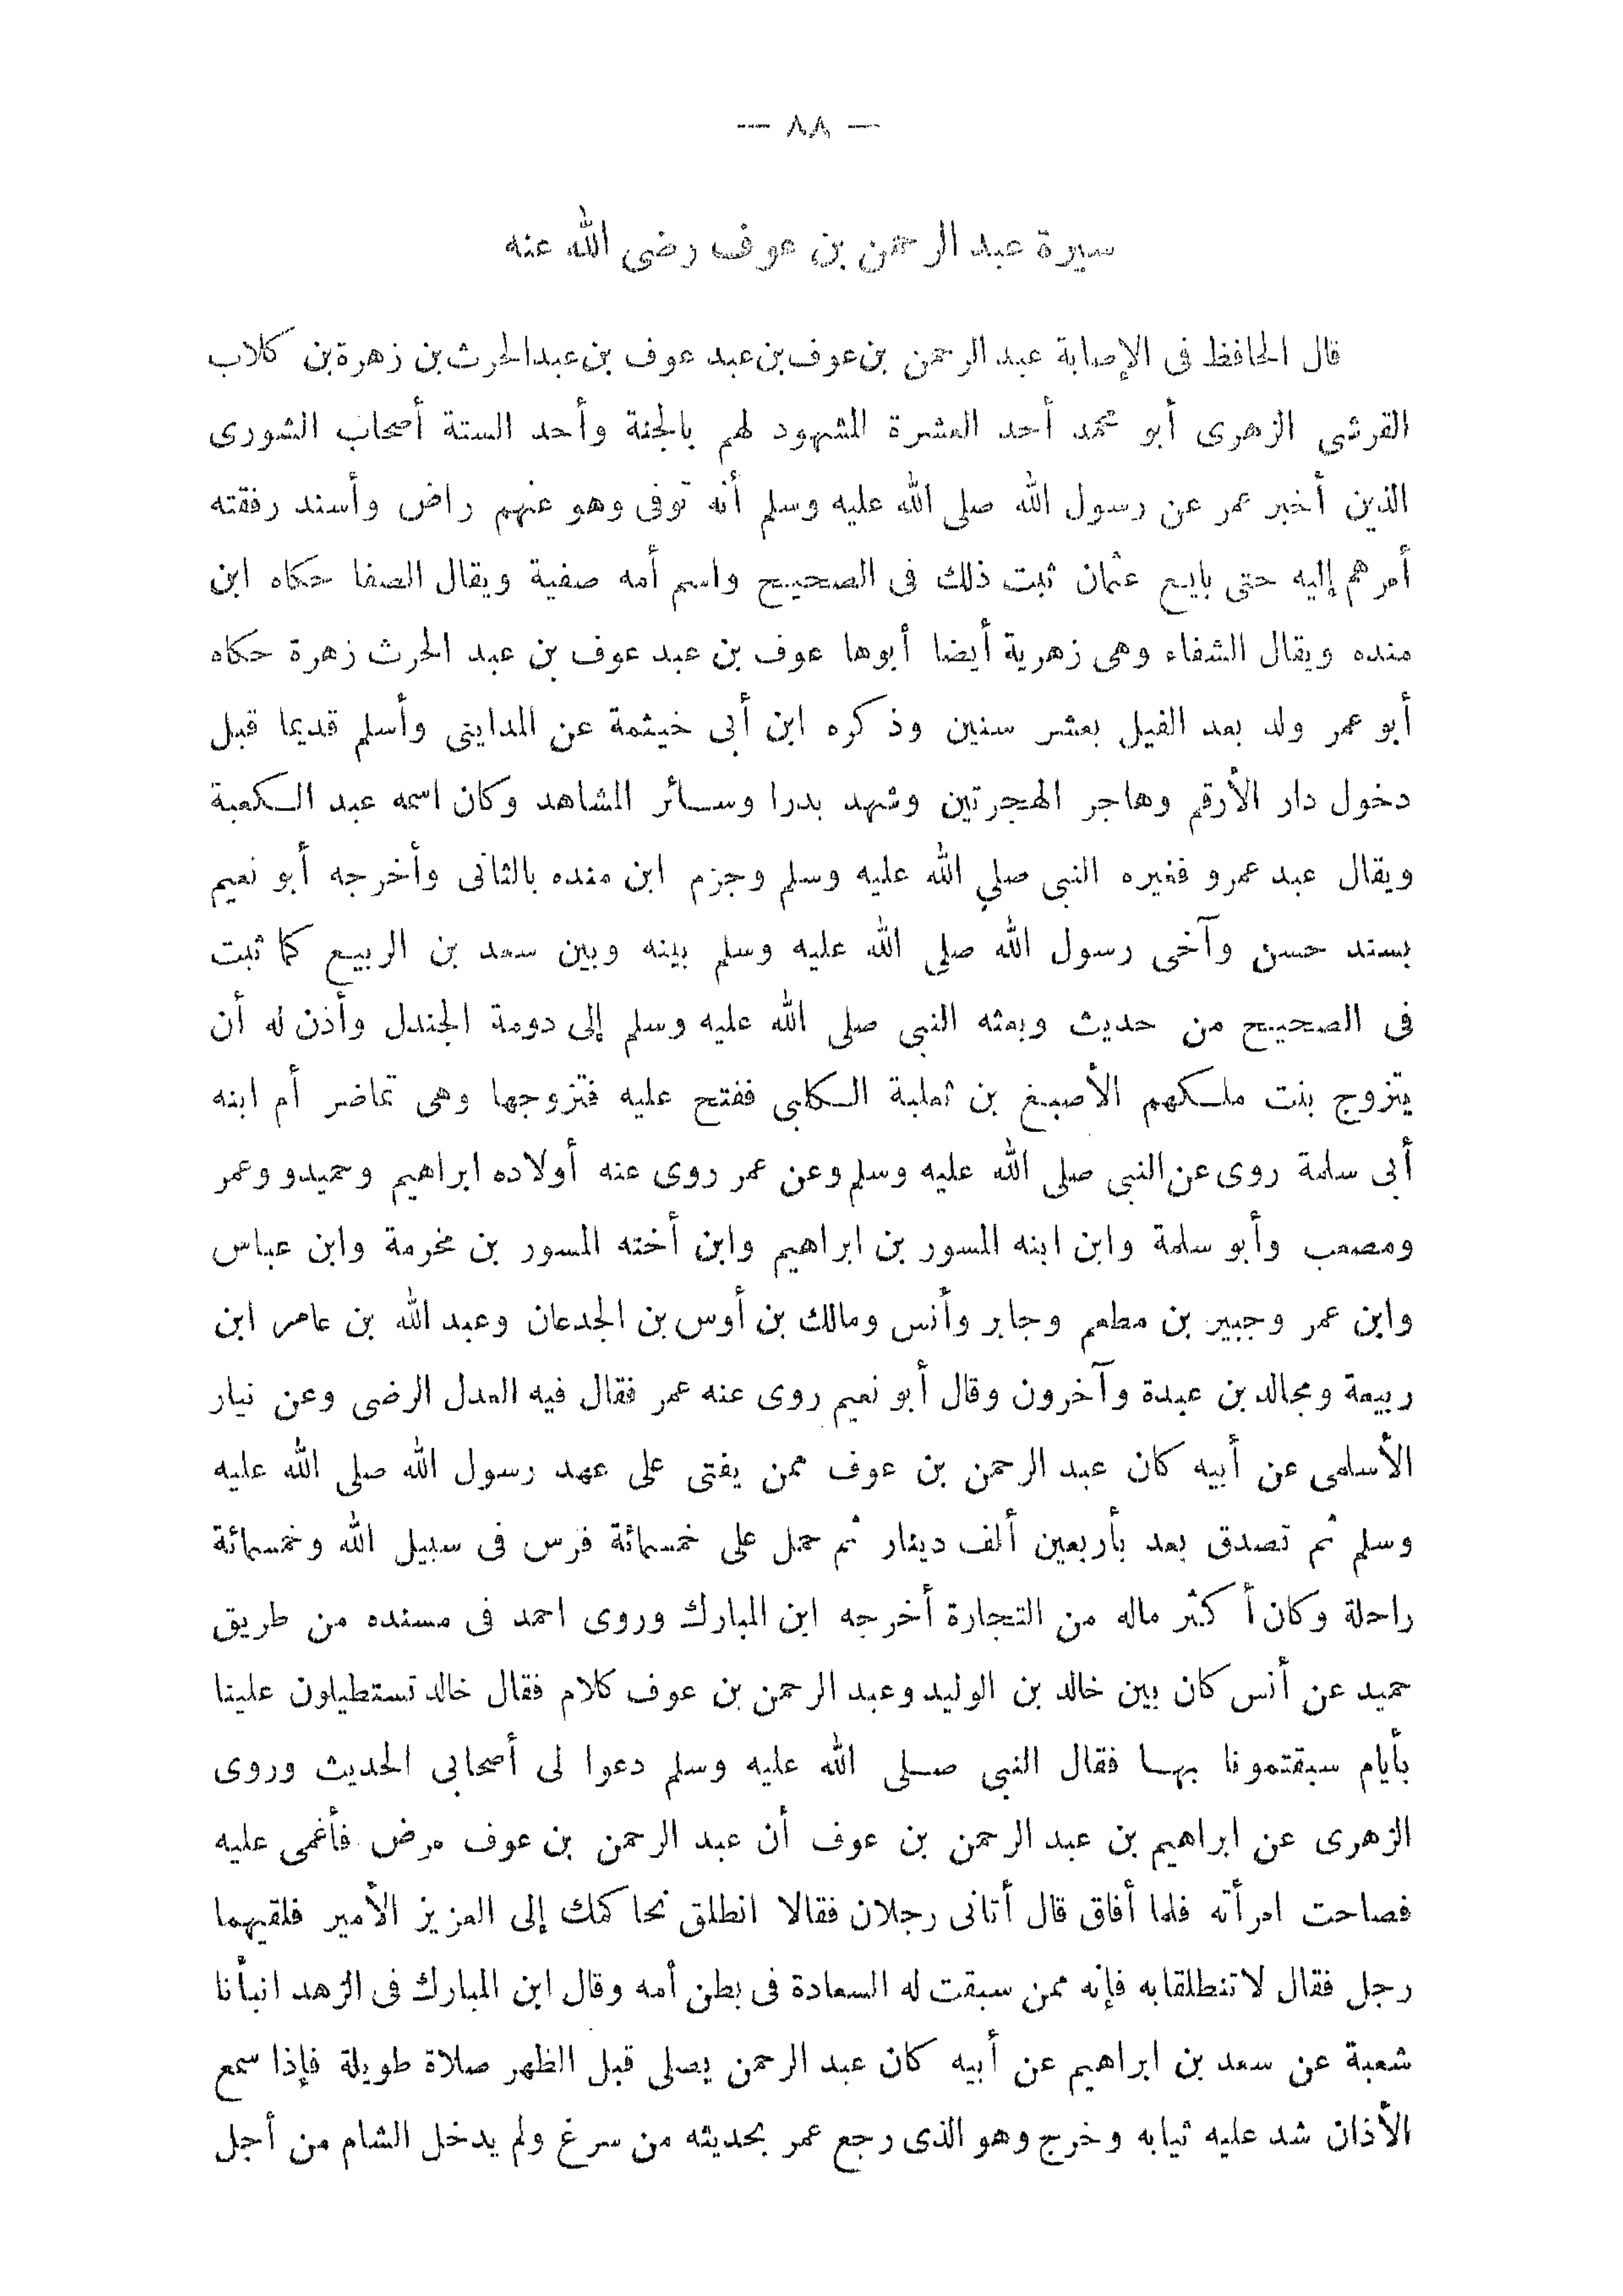 — ٨٨ —
سيرة عبد الرحمن بن عوف رضى الله عنه
قال الحافظ فى الإصابة عبد الرحمن بن عوف بن عبد عوف بن عبد الحرث بن زهرة بن كلاب
القرشى الزهرى أبو محمد أحد العشرة المشهود لهم بالجنة وأحد الستة أصحاب الشورى
الذين أخبر عمر عن رسول الله صلى الله عليه وسلم أنه توفى وهو عنهم راض وأسند رفقته
أمرهم إليه حتى بايع عثمان ثبت ذلك فى الصحيح واسم أمه صفية ويقال الصفا حكاه ابن
منده ويقال الشفاء وهى زهرية أيضا أبوها عوف بن عبد عوف بن عبد الحرث زهرة حكاه
أبو عمر ولد بعد الفيل بعشر سنين وذكره ابن أبى خيثمة عن المداينى وأسلم قديما قبل
دخول دار الأرقم وهاجر الهجرتين وشهد بدرا وسائر المشاهد وكان اسمه عبد الكعبة
ويقال عبد عمرو فغيره النبى صلى الله عليه وسلم وجزم ابن منده بالثانى وأخرجه أبو نعيم
بسند حسن وآخى رسول الله صلى الله عليه وسلم بينه وبين سعد بن الربيع كما ثبت
فى الصحيح من حديث وبعثه النبى صلى الله عليه وسلم إلى دومة الجندل وأذن له أن
يتزوج بنت ملكهم الأصبغ بن ثعلبة الكلبى ففتح عليه فتزوجها وهى تماضر أم ابنه
أبى سلمة روى عن النبى صلى الله عليه وسلم وعن عمر روى عنه أولاده ابراهيم وحميدو وعمر
ومصعب وأبو سلمة وابن ابنه المسور بن ابراهيم وابن أخته المسور بن مخرمة وابن عباس
وابن عمر وجبير بن مطعم وجابر وأنس ومالك بن أوس بن الجدعان وعبد الله بن عامر ابن
ربيعة ومجالد بن عبدة وآخرون وقال أبو نعيم روى عنه عمر فقال فيه العدل الرضى وعن نيار
الأسلمى عن أبيه كان عبد الرحمن بن عوف ممن يفتى على عهد رسول الله صلى الله عليه
وسلم ثم تصدق بعد بأربعين ألف دينار ثم حمل على خمسمائة فرس فى سبيل الله وخمسمائة
راحلة وكان أكثر ماله من التجارة أخرجه ابن المبارك وروى احمد فى مسنده من طريق
حميد عن أنس كان بين خالد بن الوليد وعبد الرحمن بن عوف كلام فقال خالد تستطيلون علينا
بأيام سبقتمونا بها فقال النبى صلى الله عليه وسلم دعوا لى أصحابى الحديث وروى
الزهرى عن ابراهيم بن عبد الرحمن بن عوف أن عبد الرحمن بن عوف مرض فأغمى عليه
فصاحت امرأته فلما أفاق قال أتانى رجلان فقالا انطلق نحاكمك إلى العزيز الأمير فلقيهما
رجل فقال لا تنطلقا به فإنه ممن سبقت له السعادة فى بطن أمه وقال ابن المبارك فى الزهد انبأنا
شعبة عن سعد بن ابراهيم عن أبيه كان عبد الرحمن يصلى قبل الظهر صلاة طويلة فإذا سمع
الأذان شد عليه ثيابه وخرج وهو الذى رجع عمر بحديثه من سرغ ولم يدخل الشام من أجل